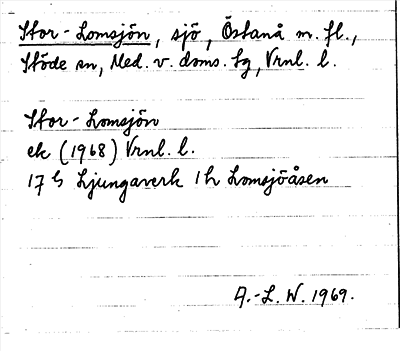 Stor-Lomsjön, sjö, Östanå m. fl.,
Stöde sn, Med. v. doms. tg, Vrnl. l.
Stor-Lomsjön
ek (1968) Vrnl. l.
17 G Ljungaverk 1 h Lomsjöåsen
A.-L. W. 1969.